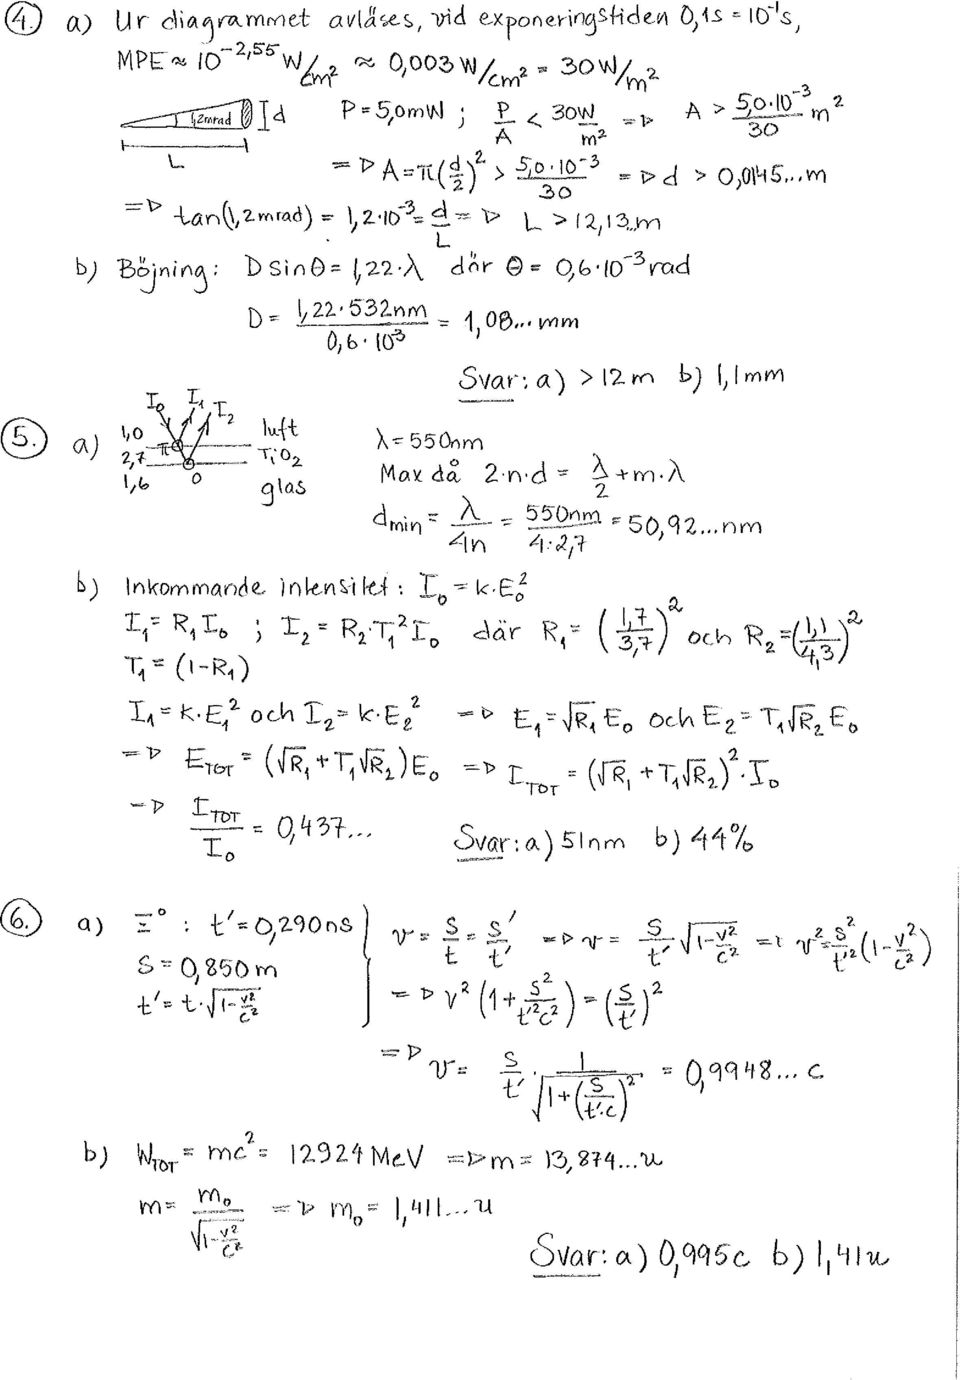 4. a) Ur diagrammet avläses, vid exponeringstiden 0,1s = 10⁻¹s,
MPE ≈ 10^-2,55 W/cm² ≈ 0,003 W/cm² = 30 W/m²
1,2mrad d L P = 5,0mW ; P/A < 30 W/m² => A > 5,0·10⁻³/30 m²
=> A = π(d/2)² > 5,0·10⁻³/30 => d > 0,0145...m
=> tan(1,2 mrad) = 1,2·10⁻³ = d/L => L > 12,13..m
b) Böjning: D sinθ = 1,22·λ där θ = 0,6·10⁻³ rad
D = 1,22·532nm / 0,6·10⁻³ = 1,08... mm
Svar: a) >12 m b) 1,1mm
5. a) I₀ I₁ I₂
1,0 luft
2,7 π TiO₂
1,6 0 glas
λ = 550nm
Max då 2·n·d = λ/2 + m·λ
d_min = λ/4n = 550nm/4·2,7 = 50,92...nm
b) Inkommande intensitet: I₀ = k·E₀²
I₁ = R₁I₀ ; I₂ = R₂·T₁²I₀ där R₁ = (1,7/3,7)² och R₂ = (1,1/4,3)²
T₁ = (1-R₁)
I₁ = k·E₁² och I₂ = k·E₂² => E₁ = √R₁ E₀ och E₂ = T₁√R₂ E₀
=> E_TOT = (√R₁ + T₁√R₂)E₀ => I_TOT = (√R₁ + T₁√R₂)²·I₀
=> I_TOT/I₀ = 0,437... Svar: a) 51nm b) 44%
6. a) Ξ⁰ : t' = 0,290ns
S = 0,850 m
t' = t·√(1-v²/c²)
v = s/t = s'/t' => v = s/t' √(1-v²/c²) => v² = s²/t'² (1-v²/c²)
=> v²(1 + s²/t'²c²) = (s/t')²
=> v = s/t' · 1/√(1+(s/t'·c)²) = 0,9948... c
b) W_TOT = mc² = 12924 MeV => m = 13,874...u
m = m₀/√(1-v²/c²) => m₀ = 1,411...u
Svar: a) 0,995c b) 1,41u